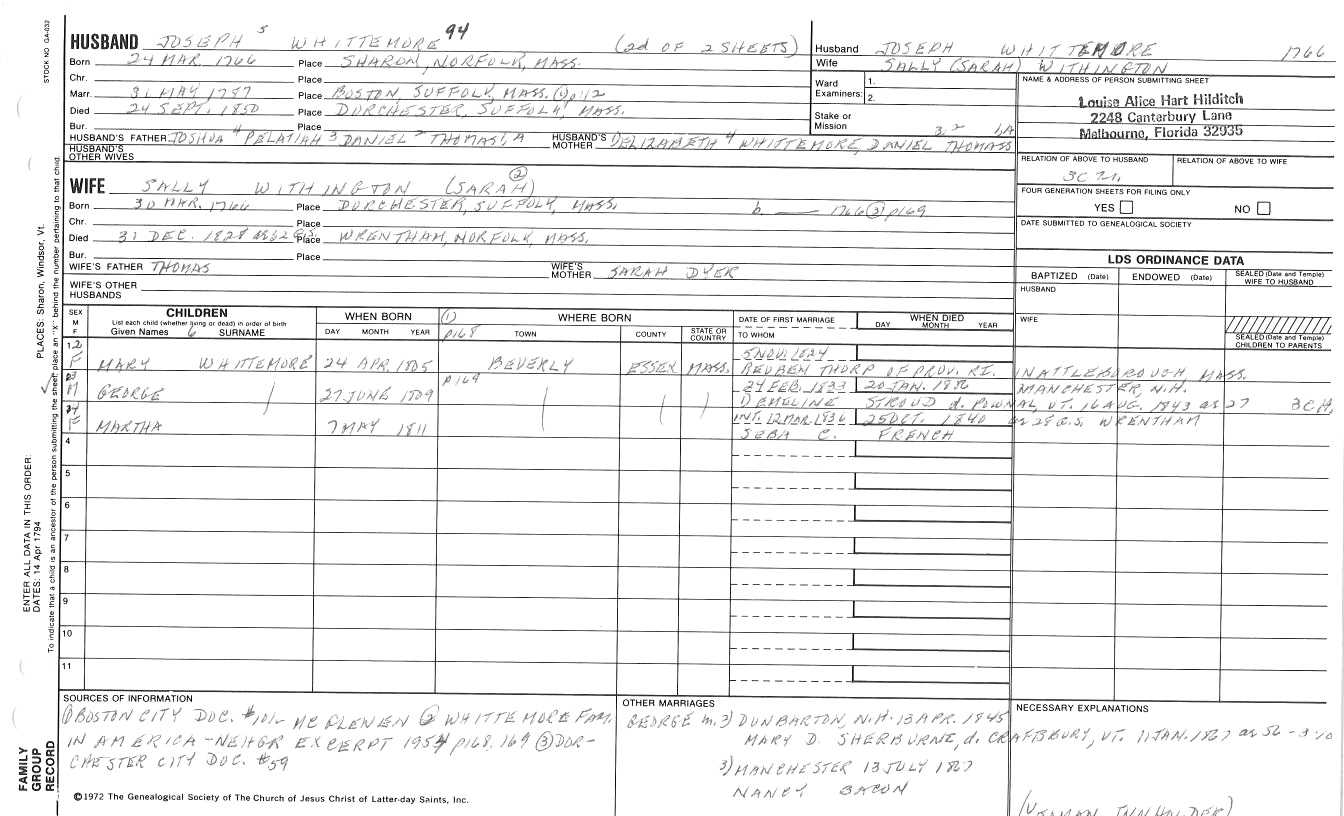 STOCK NO. GA-032
HUSBAND JOSEPH 5 WHITTEMORE 94 (2d OF 2 SHEETS)
Born 24 MAR. 1766 Place SHARON, NORFOLK, MASS.
Chr. Place
Marr. 31 MAY, 1787 Place BOSTON, SUFFOLK, MASS. (1) p112
Died 24 SEPT. 1850 Place DORCHESTER, SUFFOLK, MASS.
Bur. Place
HUSBAND'S FATHER JOSHUA 4 PELATIAH 3 DANIEL 2 THOMAS 1, A HUSBAND'S MOTHER DELIZABETH 4 WHITTEMORE, DANIEL THOMAS
HUSBAND'S OTHER WIVES
Husband JOSEPH WHITTEMORE 1766
Wife SALLY (SARAH) WITHINGTON
Ward Examiners: 1.
2.
Stake or Mission
NAME & ADDRESS OF PERSON SUBMITTING SHEET
Louise Alice Hart Hilditch
2248 Canterbury Lane
Melbourne, Florida 32935
RELATION OF ABOVE TO HUSBAND RELATION OF ABOVE TO WIFE
FOUR GENERATION SHEETS FOR FILING ONLY
YES NO
DATE SUBMITTED TO GENEALOGICAL SOCIETY
WIFE SALLY WITHINGTON (SARAH) (2)
Born 30 MAR. 1766 Place DORCHESTER, SUFFOLK, MASS. b. — 1766 (2) p169
Chr. Place
Died 31 DEC. 1828 as 62 G.S. Place WRENTHAM, NORFOLK, MASS.
Bur. Place
WIFE'S FATHER THOMAS WIFE'S MOTHER SARAH DYER
WIFE'S OTHER HUSBANDS
LDS ORDINANCE DATA
BAPTIZED (Date) ENDOWED (Date) SEALED (Date and Temple) WIFE TO HUSBAND
HUSBAND
WIFE
SEALED (Date and Temple) CHILDREN TO PARENTS
SEX M F
CHILDREN
List each child (whether living or dead) in order of birth
Given Names 6 SURNAME
WHEN BORN
DAY MONTH YEAR
(1) p168
WHERE BORN
TOWN COUNTY STATE OR COUNTRY
DATE OF FIRST MARRIAGE
TO WHOM
WHEN DIED
DAY MONTH YEAR
1 2 F MARY WHITTEMORE 24 APR. 1805 BEVERLY ESSEX MASS. 5 NOV. 1824
REUBEN THORP OF PROV. RI. IN ATTLEBOROUGH MASS.
3 M GEORGE 27 JUNE 1809 p169 24 FEB. 1833 20 JAN. 1886 MANCHESTER, N.H.
1) EMELINE STROUD d. POWNAL, VT. 16 AUG. 1843 as 27 3CH,
4 F MARTHA 7 MAY 1811 INT. 12 MAR 1836 25 OCT. 1840 as 29 G.S. WRENTHAM
SEBA C. FRENCH
4
5
6
7
8
9
10
11
SOURCES OF INFORMATION
(1) BOSTON CITY DOC. #101- (2) WHITTEMORE FAM.
IN AMERICA - NEHGR EXCERPT 1954 p168. 169 (3) DOR-
CHESTER CITY DOC. #59
OTHER MARRIAGES
GEORGE m. 3) DUNBARTON, N.H. 13 APR. 1845
MARY D. SHERBURNE, d. CRAFTSBURY, VT. 11 JAN. 1867 as 56
3) MANCHESTER 13 JULY 1867
NANCY BACON
NECESSARY EXPLANATIONS
©1972 The Genealogical Society of The Church of Jesus Christ of Latter-day Saints, Inc.
FAMILY GROUP RECORD
ENTER ALL DATA IN THIS ORDER:
DATES: 14 Apr 1794
PLACES: Sharon, Windsor, Vt.
To indicate that a child is an ancestor of the person submitting the sheet, place an "X" behind the number pertaining to that child